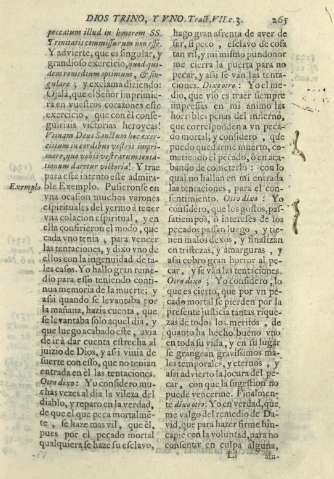 DIOS TRINO, Y VNO. Tract. VII. c. 3. 265
peccatum illud in honorem SS.
Trinitatis commissurum non esse.
Y advierte, que es singular, y
grandioso exercicio, quod quidem
remedium optimum, & singulare
; y exclama diziendo:
Ojalà, que el Señor imprimiera
en vuestros corazones este
exercicio, que con èl conseguiriais
victorias heroycas!
Utinam Deus Sanctum hoc exercitium
in cordibus vestris imprimeret,
qua vobis vestrarum tentationum
daretur victoria! Y trae
para este intento este admirable
Exemplo
Exemplo. Pusieronse en
vna ocasion muchos varones
espirituales del yermo à tener
vna colacion espiritual, y en
ella confirieron el modo, que
cada vno tenia, para vencer
las tentaciones, y dixo vno de
ellos con la ingenuidad de tales
casos. Yo hallo gran remedio
para esso teniendo continua
memoria de la muerte: y
assi quando se levantaba por
la mañana, hazia cuenta, que
se levantaba solo aquel dia, y
que luego acabado este, avia
de ir à dar cuenta estrecha al
juizio de Dios, y assi vivia de
suerte con esso, que no tenian
entrada en èl las tentaciones.
Otro dixo: Yo considero muchas
vezes al dia la vileza del
diablo, y reparo en la verdad,
de que el que peca mortalmente
, se haze mas vil, que èl,
pues por el pecado mortal
qualquiera se haze su esclavo,
hago gran afrenta de aver de
ser, si peco, esclavo de cosa
tan vil, y mi mismo pundonor
me cierra la puerta para no
pecar, y assi se vàn las tentaciones.
Dixo otro: Yo el medio,
que vso es traer siempre
impressas en mi animo las
horribles penas del infierno,
que corresponden à vn pecado
mortal, y considero, que
puedo quedarme muerto, cometiendo
el pecado, ò en acabando
de cometerlo: con lo
qual no hallan en mi entrada
las tentaciones, para el consentimiento.
Otro dixo: Yo
considero, que los gustos, passatiempos,
ò intereses de los
pecados passan luego, y tienen
malos dexos, y finalizan
en tristezas, y amarguras, y
assi cobro gran horror al pecar,
y se vàn las tentaciones.
Otro dixo: Yo considero, lo
que es cierto, que por vn pecado
mortal se pierden por la
presente justicia tantas riquezas
de todos los meritos, de
quanto ha hecho bueno vno
en toda su vida, y en su lugar
se grangean gravissimos males
temporales, y eternos, y
assi advierto la locura del pecar,
con que la sugestion no
puede vencerme. Finalmente
dixo otro: Yo en verdad, que
me valgo del remedio de David,
que para hazer firme hincapie
con la voluntad, para no
consentir en culpa alguna,